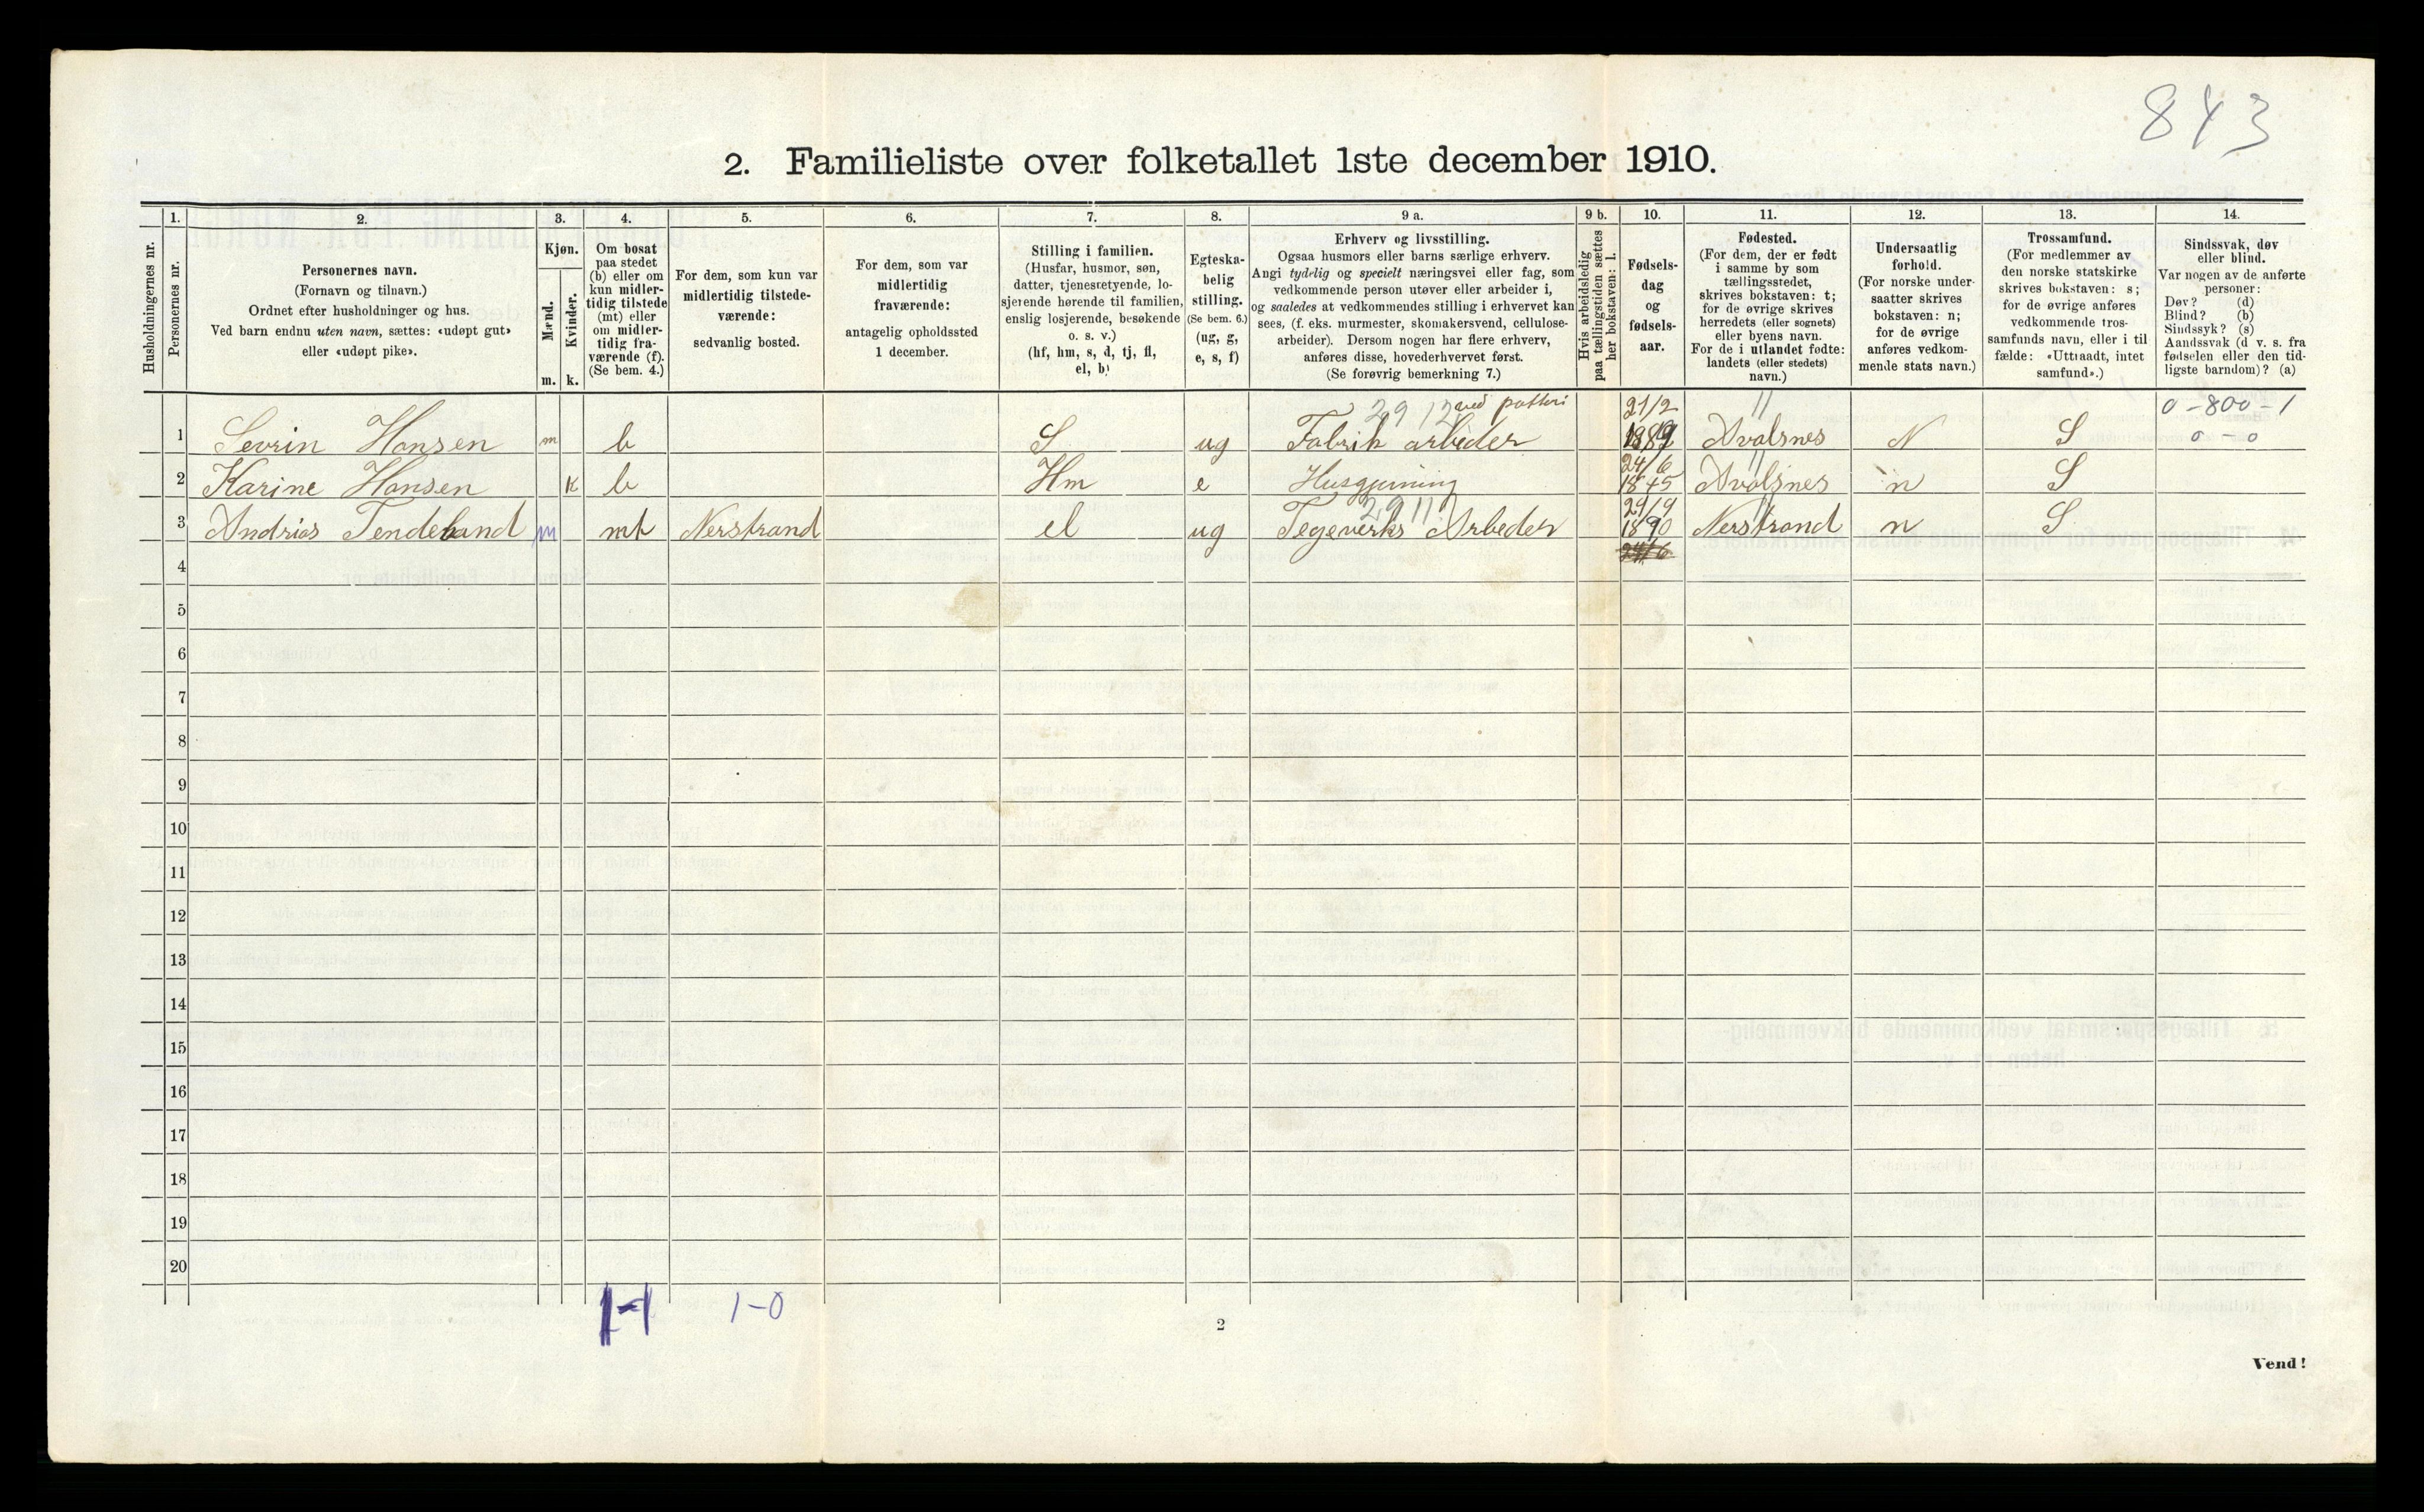 843
2. Familieliste over folketallet 1ste december 1910.
1. 2. 3. 4. 5. 6. 7. 8. 9 a. 9 b. 10. 11. 12. 13. 14.
Husholdningernes nr.
Personernes nr.
Personernes navn.
(Fornavn og tilnavn.)
Ordnet efter husholdninger og hus.
Ved barn endnu uten navn, sættes: «udøpt gut»
eller «udøpt pike».
Kjøn.
Mænd.
Kvinder.
m. k.
Om bosat
paa stedet
(b) eller om
kun midler-
tidig tilstede
(mt) eller
om midler-
tidig fra-
værende (f).
(Se bem. 4.)
For dem, som kun var
midlertidig tilstede-
værende:
sedvanlig bosted.
For dem, som var
midlertidig
fraværende:
antagelig opholdssted
1 december.
Stilling i familien.
(Husfar, husmor, søn,
datter, tjenestetyende, lo-
sjerende hørende til familien,
enslig losjerende, besøkende
o. s. v.)
(hf, hm, s, d, tj, fl,
el, b)
Egteska-
belig
stilling.
(Se bem. 6.)
(ug, g,
e, s, f)
Erhverv og livsstilling.
Ogsaa husmors eller barns særlige erhverv.
Angi tydelig og specielt næringsvei eller fag, som
vedkommende person utøver eller arbeider i,
og saaledes at vedkommendes stilling i erhvervet kan
sees, (f. eks. murmester, skomakersvend, cellulose-
arbeider). Dersom nogen har flere erhverv,
anføres disse, hovederhvervet først.
(Se forøvrig bemerkning 7.)
Hvis arbeidsledig
paa tællingstiden sættes
her bokstaven: l.
Fødsels-
dag
og
fødsels-
aar.
Fødested.
(For dem, der er født
i samme by som
tællingsstedet,
skrives bokstaven: t;
for de øvrige skrives
herredets (eller sognets)
eller byens navn.
For de i utlandet fødte:
landets (eller stedets)
navn.)
Undersaatlig
forhold.
(For norske under-
saatter skrives
bokstaven: n;
for de øvrige
anføres vedkom-
mende stats navn.)
Trossamfund.
(For medlemmer av
den norske statskirke
skrives bokstaven: s;
for de øvrige anføres
vedkommende tros-
samfunds navn, eller i til
fælde: «Uttraadt, intet
samfund».)
Sindssvak, døv
eller blind.
Var nogen av de anførte
personer:
Døv? (d)
Blind? (b)
Sindssyk? (s)
Aandssvak (d v. s. fra
fødselen eller den tid-
ligste barndom)? (a)
2912 ved potteri 21/2 " 0-800-1
1 Sevrin Hansen m b S ug Fabrik arbeider 1889 Avalsnes N S 0-0
24/6 "
2 Karine Hansen K b Hm e Husgjerning 1845 Avalsnes n S
2911 "
3 Andrias Tendeland m mt Nerstrand el ug Tegeverks Arbeder 1890 Nerstrand n S
4
5
6
7
8
9
10
11
12
13
14
15
16
17
18
19
20
1-1 1-0
2
Vend!